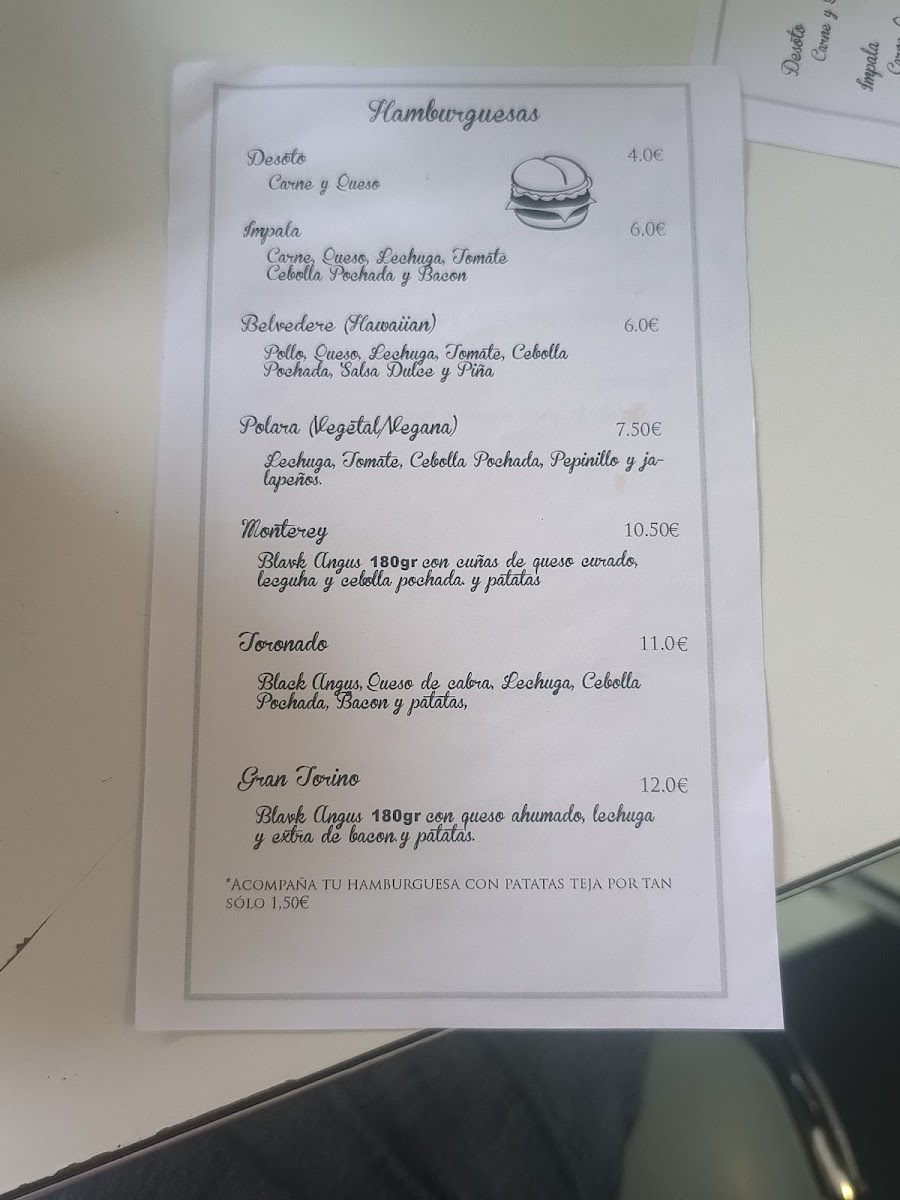 Hamburguesas
Desoto 4.0€
Carne y Queso
Impala 6.0€
Carne, Queso, Lechuga, Tomate
Cebolla Pochada y Bacon
Belvedere (Hawaiian) 6.0€
Pollo, Queso, Lechuga, Tomate, Cebolla
Pochada, Salsa Dulce y Piña
Polara (Vegetal/Vegana) 7.50€
Lechuga, Tomate, Cebolla Pochada, Pepinillo y ja-
lapeños.
Monterey 10.50€
Blavk Angus 180gr con cuñas de queso curado,
lecguha y cebolla pochada. y patatas
Toronado 11.0€
Black Angus, Queso de cabra, Lechuga, Cebolla
Pochada, Bacon y patatas,
Gran Torino 12.0€
Blavk Angus 180gr con queso ahumado, lechuga
y extra de bacon.y patatas.
*Acompaña tu hamburguesa con patatas teja por tan
sólo 1,50€
Desoto
Carne y
Impala